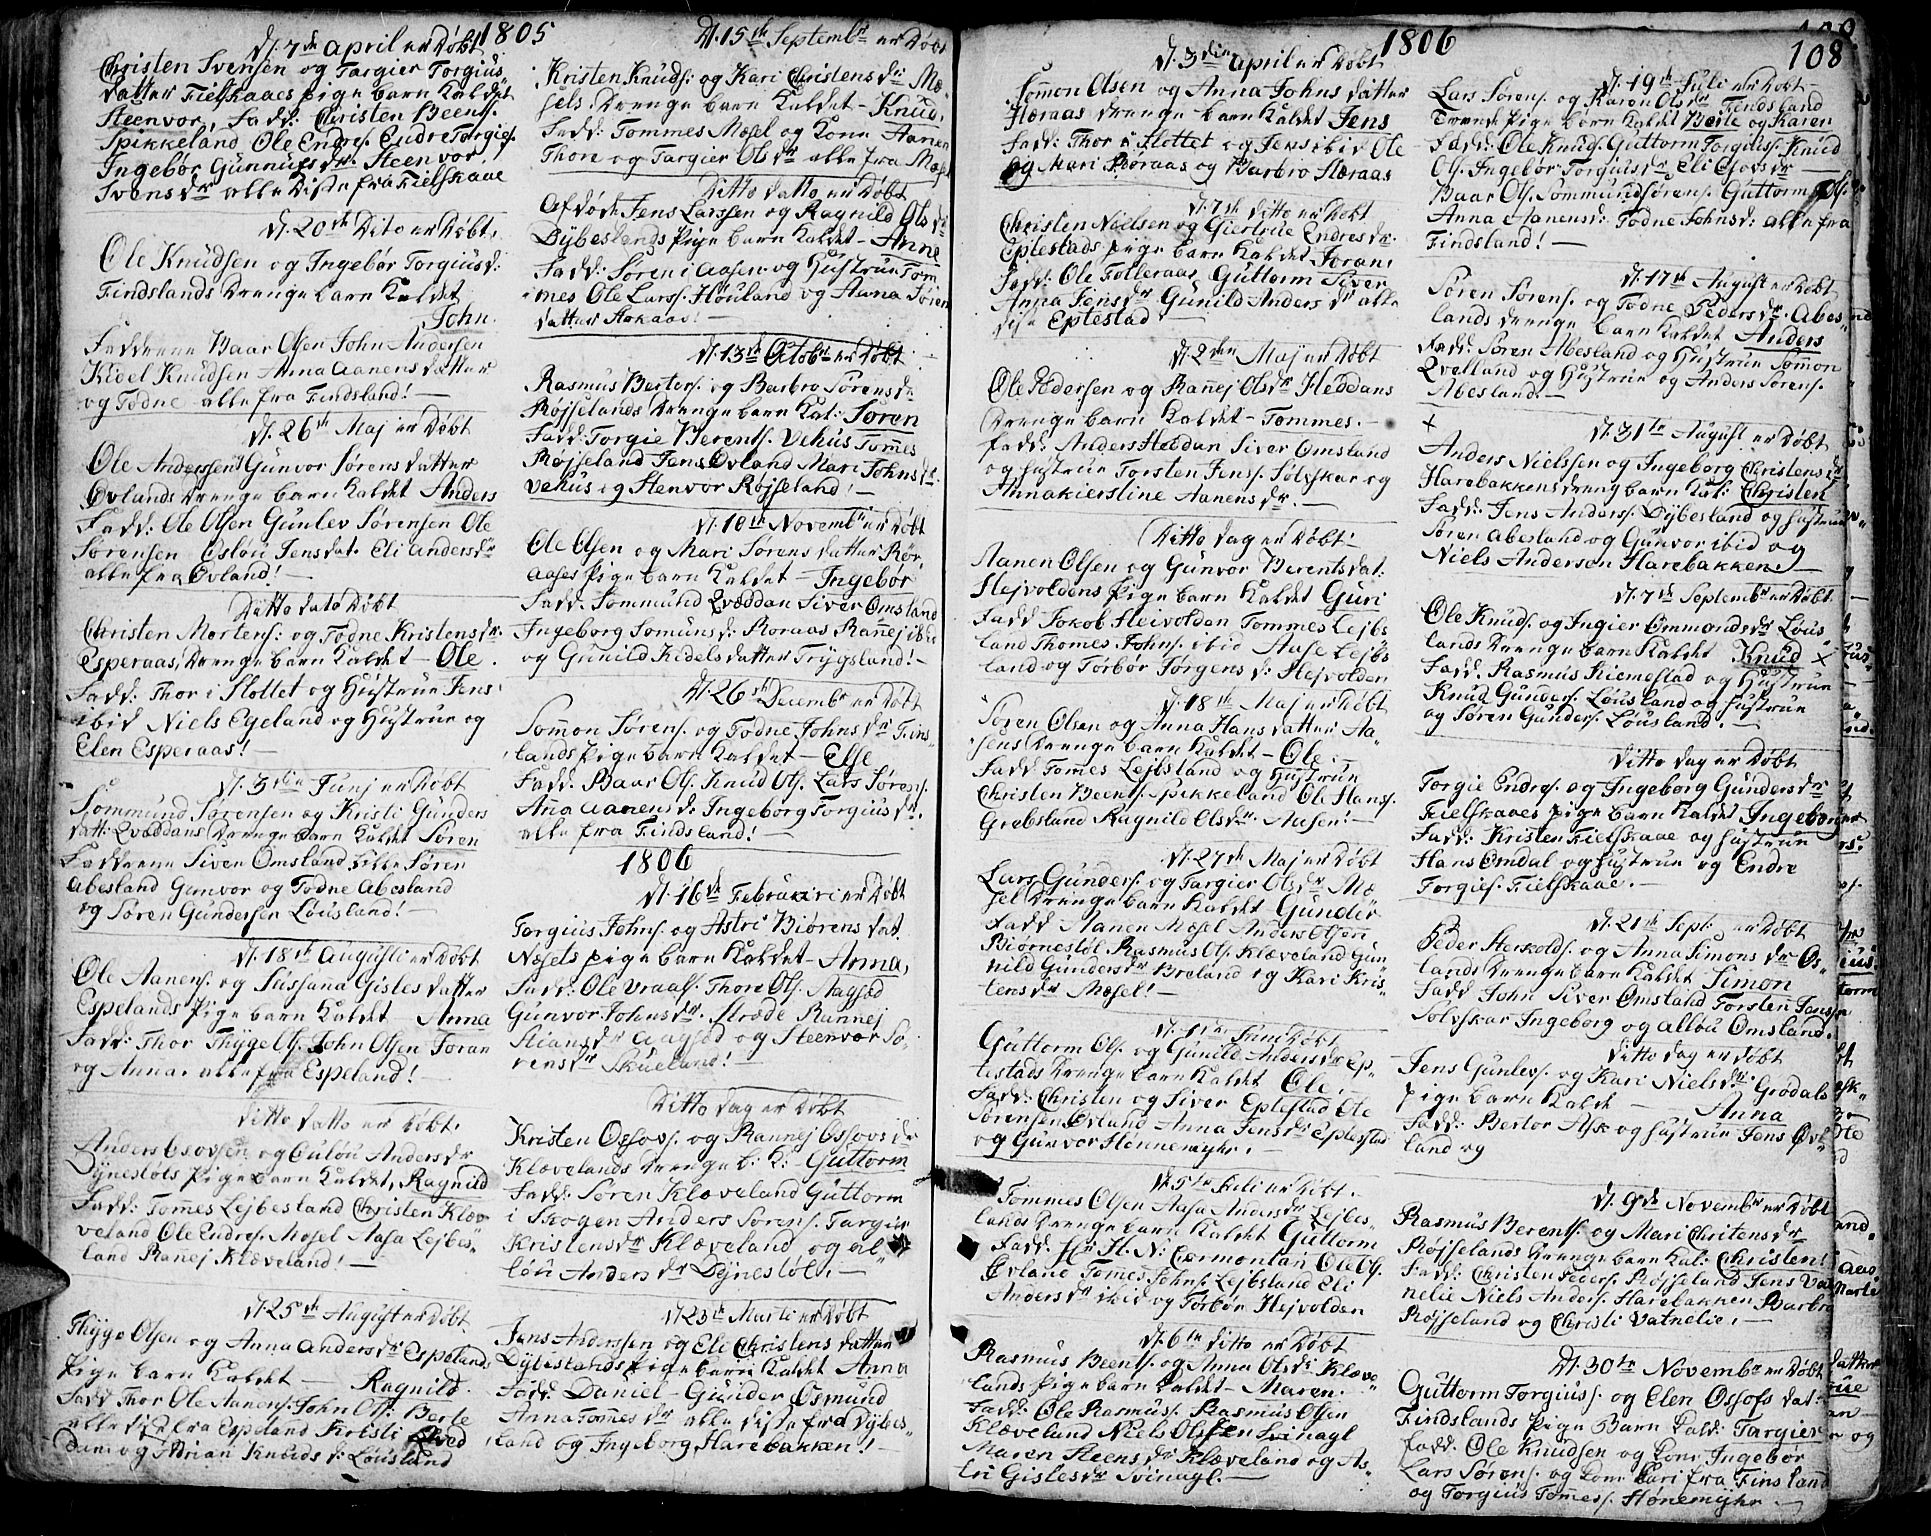 1805
d. 7de April er Døbt
Christen Svensen og Targier Torgius
datter Fielskaaes pige barn Kaldet
Steenvor, Fadd: Christen Beents.
Spikkeland Ole Endres. Endre Torgies.
Ingebor Gunnufs dr. Steenvor
Svens dr alle diße fra Fielskaae
d. 20de Dito er Døbt.
Ole Knudsen og Ingebor Torgius d:
Findslands drenge barn Kaldet
John.
Faddrene Baar Olsen John Andersen
Kidel Knudsen Anna Aanens datter
og Todne alle fra Findsland!
d. 26de Maj er Døbt
Ole Anderssen Gunvor Sørens datter
Øvlands drenge barn Kaldet Anders
Fadd: Ole Olsen Gunlev Sørensen Ole
Sørensen Oslou Jens dat. Eli Anders dr
alle fra Øvland!
Ditto dato Døbt
Christen Mortens: og Todne Kristens dr.
Esperaas, drenge barn Kaldet Ole.
Fadd: Thor i Slottet og Hustrue Jens
ibid Niels Egeland og Hustrue og
Elen Esperaas!
d. 3die Junj er Døbt
Sommund Sørensen og Kristi Gunders
datt: Qvæddans drenge barn Kaldet Søren
Faddrene Siver Omsland lille Søren
Abesland Gunvor og Todne Abesland
og Søren Gundersen Løusland!
d. 18de Augusti er Døbt
Ole Aanens. og Susana Gisles datter
Espelands pige barn Kaldet Anna
Fadd: Thor Thygeß. John Olsen Joran
og Anna. alle fra Espeland!
Ditto datto er Døbt.
Anders Osovsen og Oulou Anders dr
Dynestøls pige barn Kaldet, Ragnild
Fadd: Tommes Lejbesland Christen Klæ-
veland Ole Endres. Mosel Aasa Lejbes-
land Ranej Klæveland!
d. 25de August er Døbt
Thyge Olsen og Anna Anders dr Espelands
pige barn Kaldet Ragnild.
Fadd Thor Ole Aanens. John Ols. Berte
alle diße fra Espeland Kristi
og Adrian Knuds d: Løusland
d. 15de Septembr er Døbt
Kristen Knuds: og Kari Christens dr Mæ-
sels drenge barn Kaldet Knud,
Fadd: Tommes Mosel og Kone Aanen
Thore og Targier Ols dr alle fra Mæsel
Ditto datto er Døbt
Afdøde Jens Larssen og Ragnild Ols dr
Dybeslands pige barn Kaldet Anne
Fadd: Søren i Aasen og Hustrue Tom
mes Ole Larss. Høuland og Anna Søren
datter Aakaas!
d. 13de Octobr er Døbt
Rasmus Bertors. og Barbro Sørens dr
Røjselands drenge barn Kal: Søren
Fadd: Torgie Berents. Vehus Tommes
Røjseland Jens Øvland Mari Johns dr.
Vehus og Stenvor Røjseland!
d. 18de Novembr er Døbt
Ole Olsen og Mari Sørens datter Rør-
aases pige barn Kaldet Ingebor
Fadd: Sommund Qvæddan Siver Omsland
Ingeborg Somuns d: Roraas Rannej ibid
og Gunild Kidels datter Trygsland!
d. 26de Decembr er Døbt
Sommon Sørens. og Todne Johns dr Fins-
lands pige barn Kaldet Else
Fadd: Baar Ols. Knud Ols. Lars Sørens.
Anna Aanens d: Ingeborg Torgius dr,
alle fra Findsland!
1806
d. 16de Februari er Døbt
Torgius Johns. og Astri Biørens dat.
Næsets pige barn Kaldet Anna,
Fadd: Ole Vraals. Thore Ols. Aagsød
Gunvor Johns dr. Strøde Rannej
Stians dr Aagsød og Steenvor Sø-
rens dr Skueland!
Ditto dag er Døbt
Kristen Ossovs. og Rannej Ossovs dr
Klævelands drenge b: K: Guttorm
Fadd: Søren Klæveland Guttorm
i Skogen Anders Sørens. Targier
Kristens dr Klæveland og al-
løu Anders dr Dynestøl.
d 23de Marti er Døbt
Jens Anderssen og Eli Christens datter
Dybeslands pige barn Kaldet Anna
Fadd: Daniel Gunder Osmund
Anna Tommes dr alle diße fra Dybes-
land og Ingeborg Harebakken!
1806
108
d. 3die April er Døbt
Sommon Olsen og Anna Johns datter
Høraas drenge barn Kaldet Jens
Fadd: Thor i Slottet og Jens ibid Ole
og Mari Røraas og Barbro Høraas
d. 7de ditto er Døbt
Christen Nielsen og Giertrue Endres dr.
Eptestads pige barn Kaldet Joran,
Fadd: Ole Folleraas Guttorm Siver
Anna Jens dr Gunild Anders dr alle
diße Eptestad
d. 2den Maj er Døbt
Ole Pedersen og Rannej Ols dr Heddans
drenge barn Kaldet Tommes.
Fadd: Anders Heddan Siver Omsland
og Hustrue Torsten Jens. Solvskar og
Annakierstine Aanens dr.
Ditto dag er Døbt!
Aanen Olsen og Gunvor Berents dat:
Hejvoldens pige barn Kaldet Guri
Fadd Jokob Heivolden Tommes Lejbs
land Thomes Johns. ibid Aase Lejbs
land og Torbor Jørgens d: Hejvolden
d. 18de Maj er Døbt
Søren Olsen og Anna Hans datter Aa-
sens drenge barn Kaldet Ole.
Fadd Tommes Lejbsland og Hustrue
Christen Beents. Spikkeland Ole Hans.
Grebsland Ragnild Ols dr. Aasen!
d. 27de Maj er Døbt
Lars Gunders. og Targier Ols dr Mæ
sel drenge barn Kaldet Gunder
Fadd Aanen Mosel Anders Olsen
Biørnestøl Rasmus Ols. Klæveland Gun
nild Gunders dr Breland og Kari Kris-
tens dr Mæsel!
d. 1ste Juni Døbt
Guttorm Ols. og Gunild Anders dr Ep-
testads drenge barn Kaldet Ole,
Fadd: Christen og Siver Eptestad Ole
Sørensen Øvland Anna Jens dr Eptestad
og Gunvor Hønnemyhr.
d. 5te Juli er Døbt.
Tommes Olsen Aasa Anders dr Lejbes-
lands drenge barn Kaldet Guttorm
Fadd: Hr H. N: Cormontan Ole Ols.
Øvland Tommes Johns. Lejbsland Eli
Anders dr ibid og Torbor Hejvolden
d. 6te ditto er Døbt
Rasmus Beents. og Anna Ols dr Klæve-
lands pige barn Kaldet Maren.
Fadd: Ole Rasmus. Rasmus Olsen
Klæveland Niels Olssen Svinagl
Maren Steens dr Klæveland og As-
tri Gisles dr Svinagl.
d. 19de Juli er Døbt
Lars Sørens. og Karen Ols dr Findsland
Tvende pige barn Kaldet Berte og Karen
Fadd: Ole Knuds. Guttorm Torgiuss. Knud
Ols. Ingebor Torgius dr Eli Osovs dr
Baar Ols. Sommund Sørens. Guttorm Ols.
Anna Aanens d: Todne Johns d: alle fra
Findsland!
d. 17de August er Døbt
Søren Sørens. og Todne Peders dr. Abes-
lands drenge barn Kaldet Anders
Fadd: Søren Abesland og Hustrue Sommon
Qvelland og Hustrue og Anders Sørens.
Abesland.
+
d. 31te August er Døbt
Anders Nielssen og Ingeborg Christens dr
Harebakkens dreng barn Kal: Christen
Fadd: Jens Anders. Dybesland og Hustrue
Søren Abesland og Gunvor ibid og
Niels Andersen Harebakken
d. 7de Septembr er Døbt
Ole Knuds. og Ingier Ommonds dr Løus
lands drenge barn Kaldet Knud +
Fadd. Rasmus Kiemestad og Hustrue
Knud Gunders. Løusland og Hustrue
og Søren Gunders. Løusland.
Ditto dag er Døbt
Torgie Endres. og Ingeborg Gunders dr
Fielskaaes pige barn Kaldet Ingeborg
Fadd: Kristen Fielskaae og Hustrue
Hans Omdal og Hustrue og Endre
Torgies. Fielskaae.
d. 21de Sept: er Døbt
Peder Herkolds. og Anna Simons dr Os-
lands drenge barn Kaldet Simon
Fadd John Siver Omsland Torsten Jensen
Solvskar Ingeborg og Allou Omsland.
Ditto dag er Døbt
Jens Gunlevs. og Kari Niels dr Grødals
pige barn Kaldt Anna
Fadd: Bertor Ask og Hustrue Jens Øv-
land og
d. 9de Novembr er Døbt
Rasmus Berents. og Mari Christens dr
Røjselands drenge barn Kal: Christen
Fadd: Christen Peders. Røjseland Jens Vat
nelie Niels Anders. Harebakken Barbro
Røjseland og Christi Vatnelie.
d. 30te Novembr er Døbt
Guttorm Torgius. og Elen Ossofs dat:
Findslands pige Barn Kald: Targier
Fadd: Ole Knudsen og Kone Ingebor
Lars Sørens. og Kone Kari fra Finsland
og Torgius Tommes. Hønemyhr